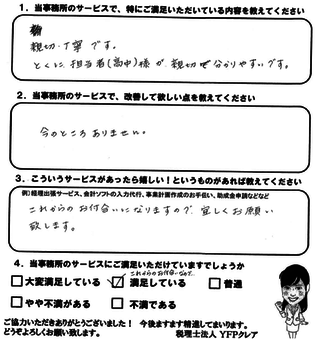 1．当事務所のサービスで、特にご満足いただいている内容を教えてください
親切・丁寧です。
とくに、担当者(高中)様が、親切で分かりやすいです。
2．当事務所のサービスで、改善して欲しい点を教えてください
今のところありません。
3．こういうサービスがあったら嬉しい！というものがあれば教えてください
例)経理出張サービス、会計ソフトの入力代行、事業計画作成のお手伝い、助成金申請などなど
これからのお付合いになりますので、宜しくお願い
致します。
4．当事務所のサービスにご満足いただけていますでしょうか
これからのお付合いなので、
□大変満足している ☑満足している □普通
□やや不満がある □不満である
ご協力いただきありがとうございました！ 今後ますます精進してまいります。
どうぞよろしくお願い致します。 税理士法人 YFPクレア